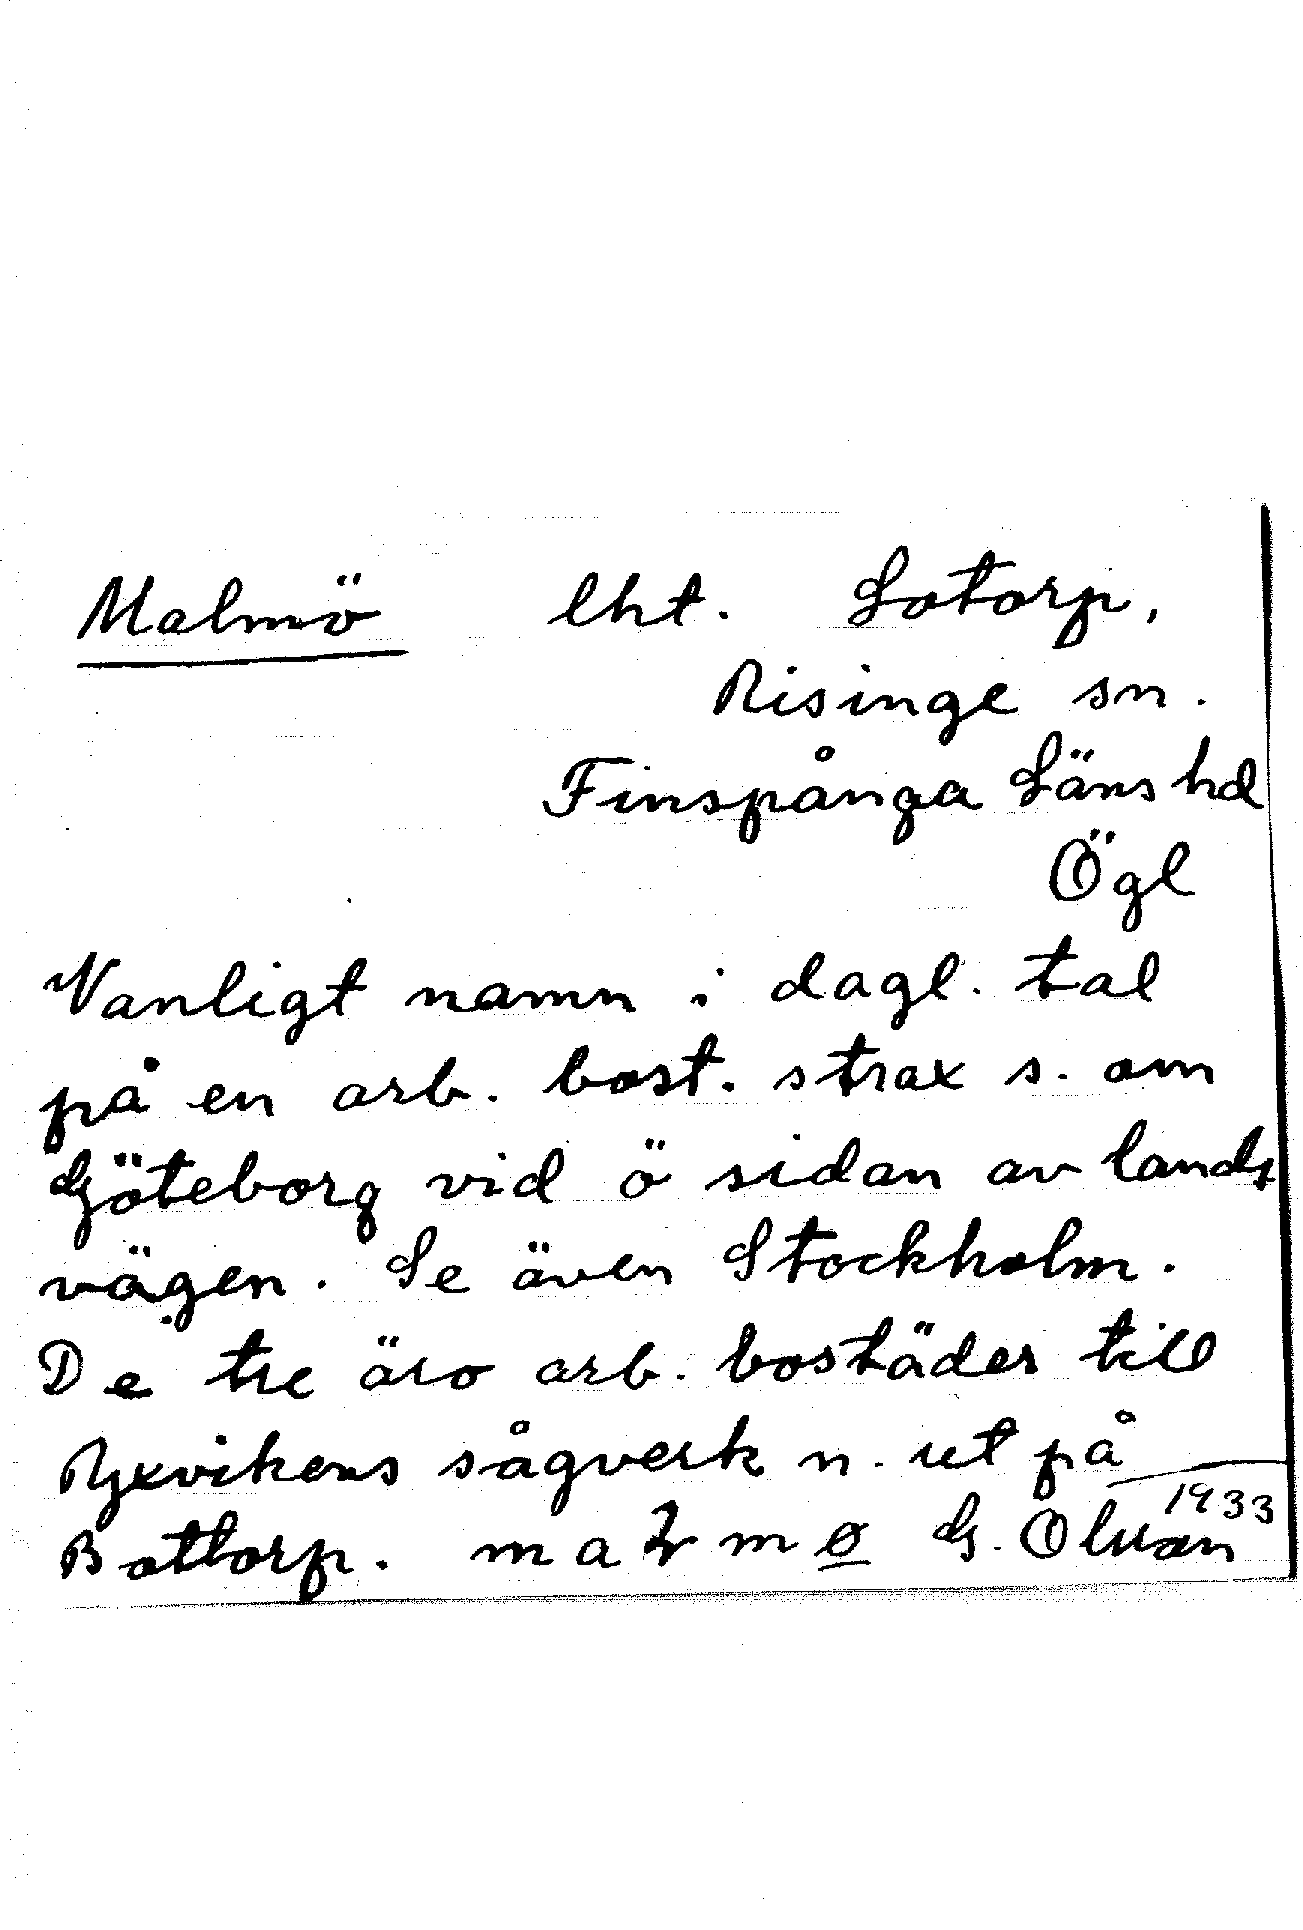 Malmö lht. Lotorp,
Risinge sn.
Finspånga Läns hd
Ögl
Vanligt namn i dagl. tal
på en arb. bost. strax s. om
Göteborg vid ö sidan av lands
vägen. Se även Stockholm.
De tre äro arb. bostäder till
Ryxvikens sågverk n. ut på
Bottorp. ma m ø G.
1933